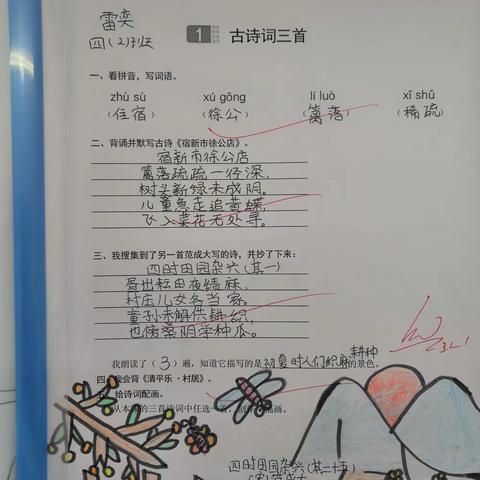 雷奕
四(2)班
1 古诗词三首
一、看拼音，写词语。
zhù sù xú gōng lí luò xī shū
(住宿) (徐公) (篱落) (稀疏)
二、背诵并默写古诗《宿新市徐公店》。
宿新市徐公店
篱落疏疏一径深,
树头新绿未成阴。
儿童急走追黄蝶,
飞入菜花无处寻。
三、我搜集到了另一首范成大写的诗，并抄了下来：
四时田园杂兴(其一)
昼出耘田夜绩麻,
村庄儿女各当家。
童孙未解供耕织,
也傍桑阴学种瓜。
我朗读了（3）遍，知道它描写的是初夏时人们织麻耕种的景色。
四、我会背《清平乐·村居》。
给诗词配画。
从本课的三首诗词中任选一首，
四时田园杂兴(其二十五)